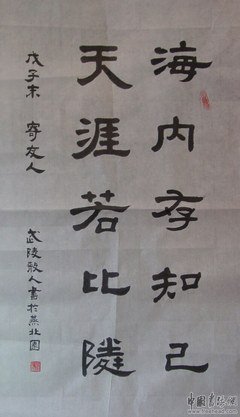 海内存知己
天涯若比隣
戊子末 寄友人
武陵 人書於燕北園